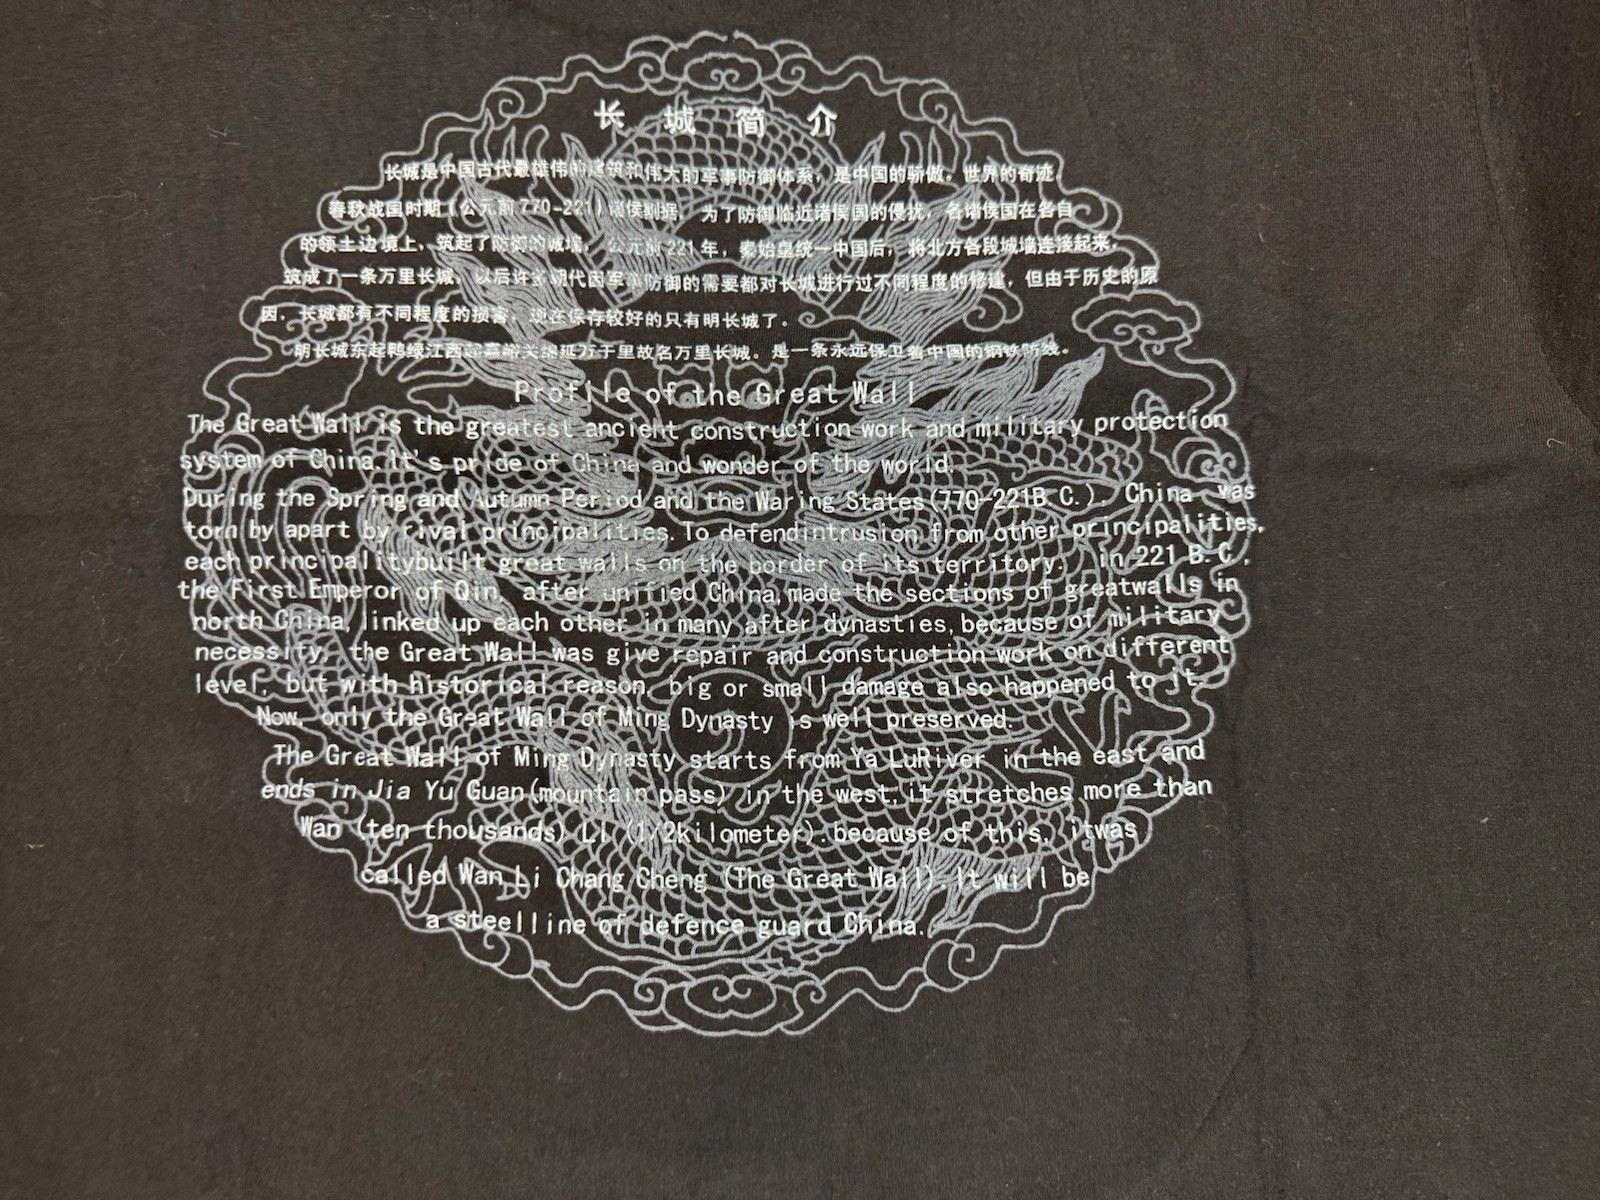 长城简介
长城是中国古代最雄伟的建筑和伟大的军事防御体系，是中国的骄傲。世界的奇迹。
春秋战国时期（公元前770-221）诸侯割据，为了防御临近诸侯国的侵扰，各诸侯国在各自
的领土边境上，筑起了防御的城墙，公元前221年，秦始皇统一中国后，将北方各段城墙连接起来，
筑成了一条万里长城，以后许多朝代因军事防御的需要都对长城进行过不同程度的修建，但由于历史的原
因，长城都有不同程度的损害，现在保存较好的只有明长城了。
明长城东起鸭绿江西起嘉峪关绵延万千里故名万里长城。是一条永远保卫着中国的钢铁防线。
Profile of the Great Wall
The Great Wall is the greatest ancient construction work and military protection
system of China. It's pride of China and wonder of the world.
During the Spring and Autumn Period and the Waring States(770-221B.C.). China was
torn by apart by rival principalities. To defendintrusion from other principalities,
each principalitybuilt great walls on the border of its territory. in 221 B.C,
the First Emperor of Qin, after unified China, made the sections of greatwalls in
north China, linked up each other in many after dynasties, because of military
necessity, the Great Wall was give repair and construction work on different
level, but with historical reason, big or small damage also happened to it.
Now, only the Great Wall of Ming Dynasty is well preserved.
The Great Wall of Ming Dynasty starts from Ya LuRiver in the east and
ends in Jia Yu Guan(mountain pass) in the west, it stretches more than
Wan (ten thousands) Li (1/2kilometer). because of this, itwas
called Wan Li Chang Cheng (The Great Wall) It will be
a steelline of defence guard China.